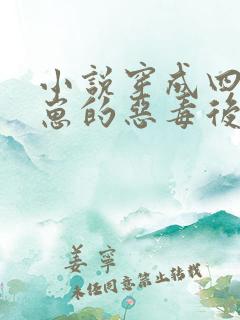 小說穿成四
崽的惡毒後
姜寧
未经同意禁止转载